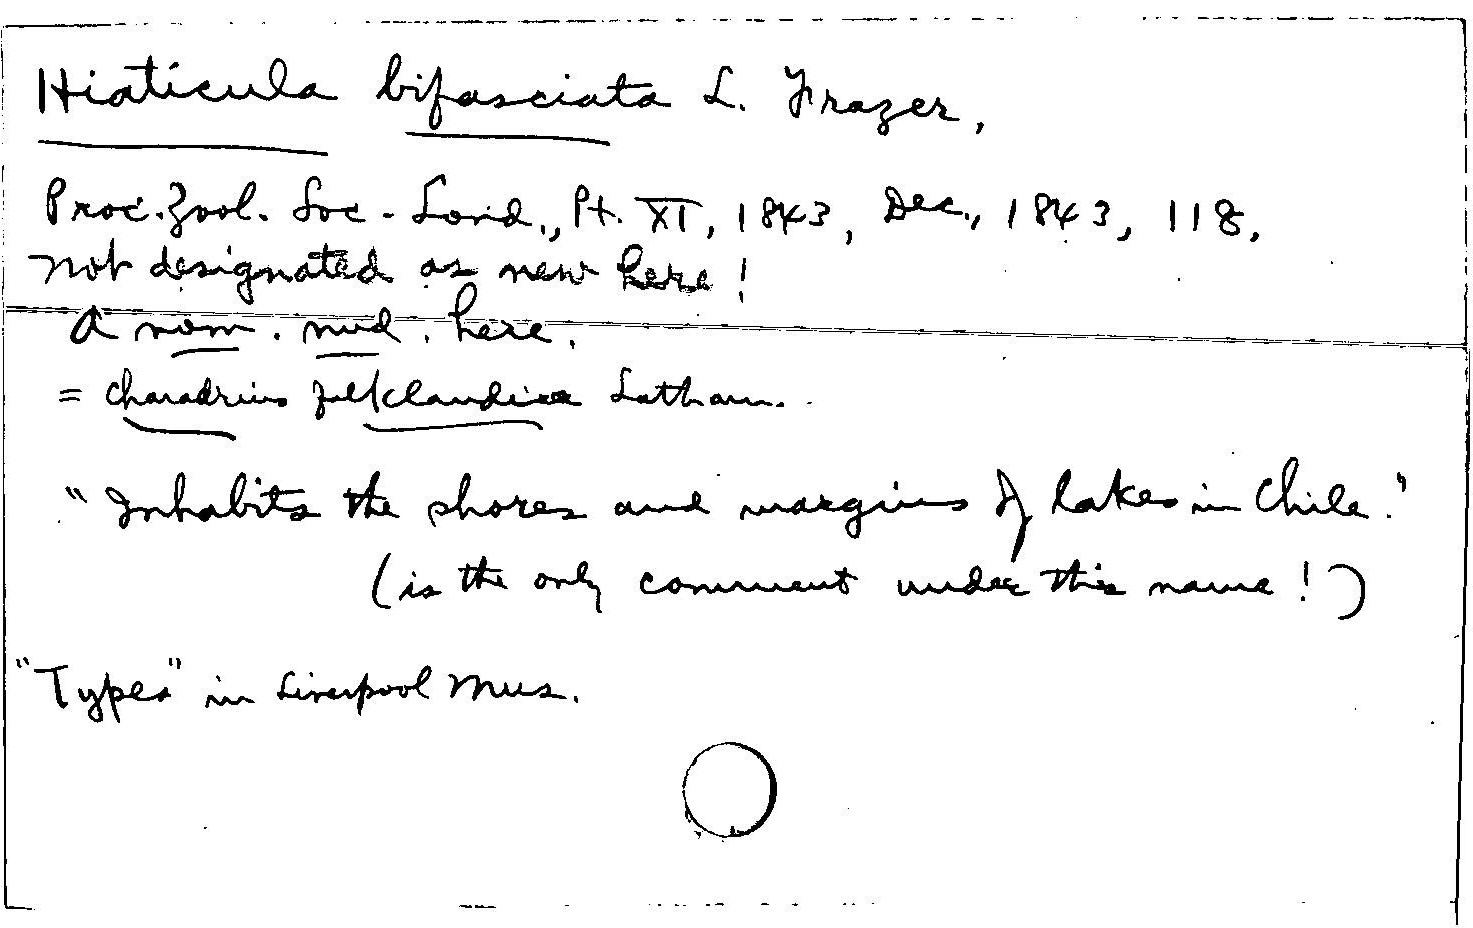 Hiaticula bifasciata L. Frazer,
Proc. Zool. Soc. Lond., Pt. XI, 1843, Dec., 1843, 118,
not designated as new here!
A nom. nud. here.
= Charadrius falklandicus Latham.
"Inhabits the shores and margins of lakes in Chile."
(is the only comment under this name!)
"Types" in Liverpool Mus.